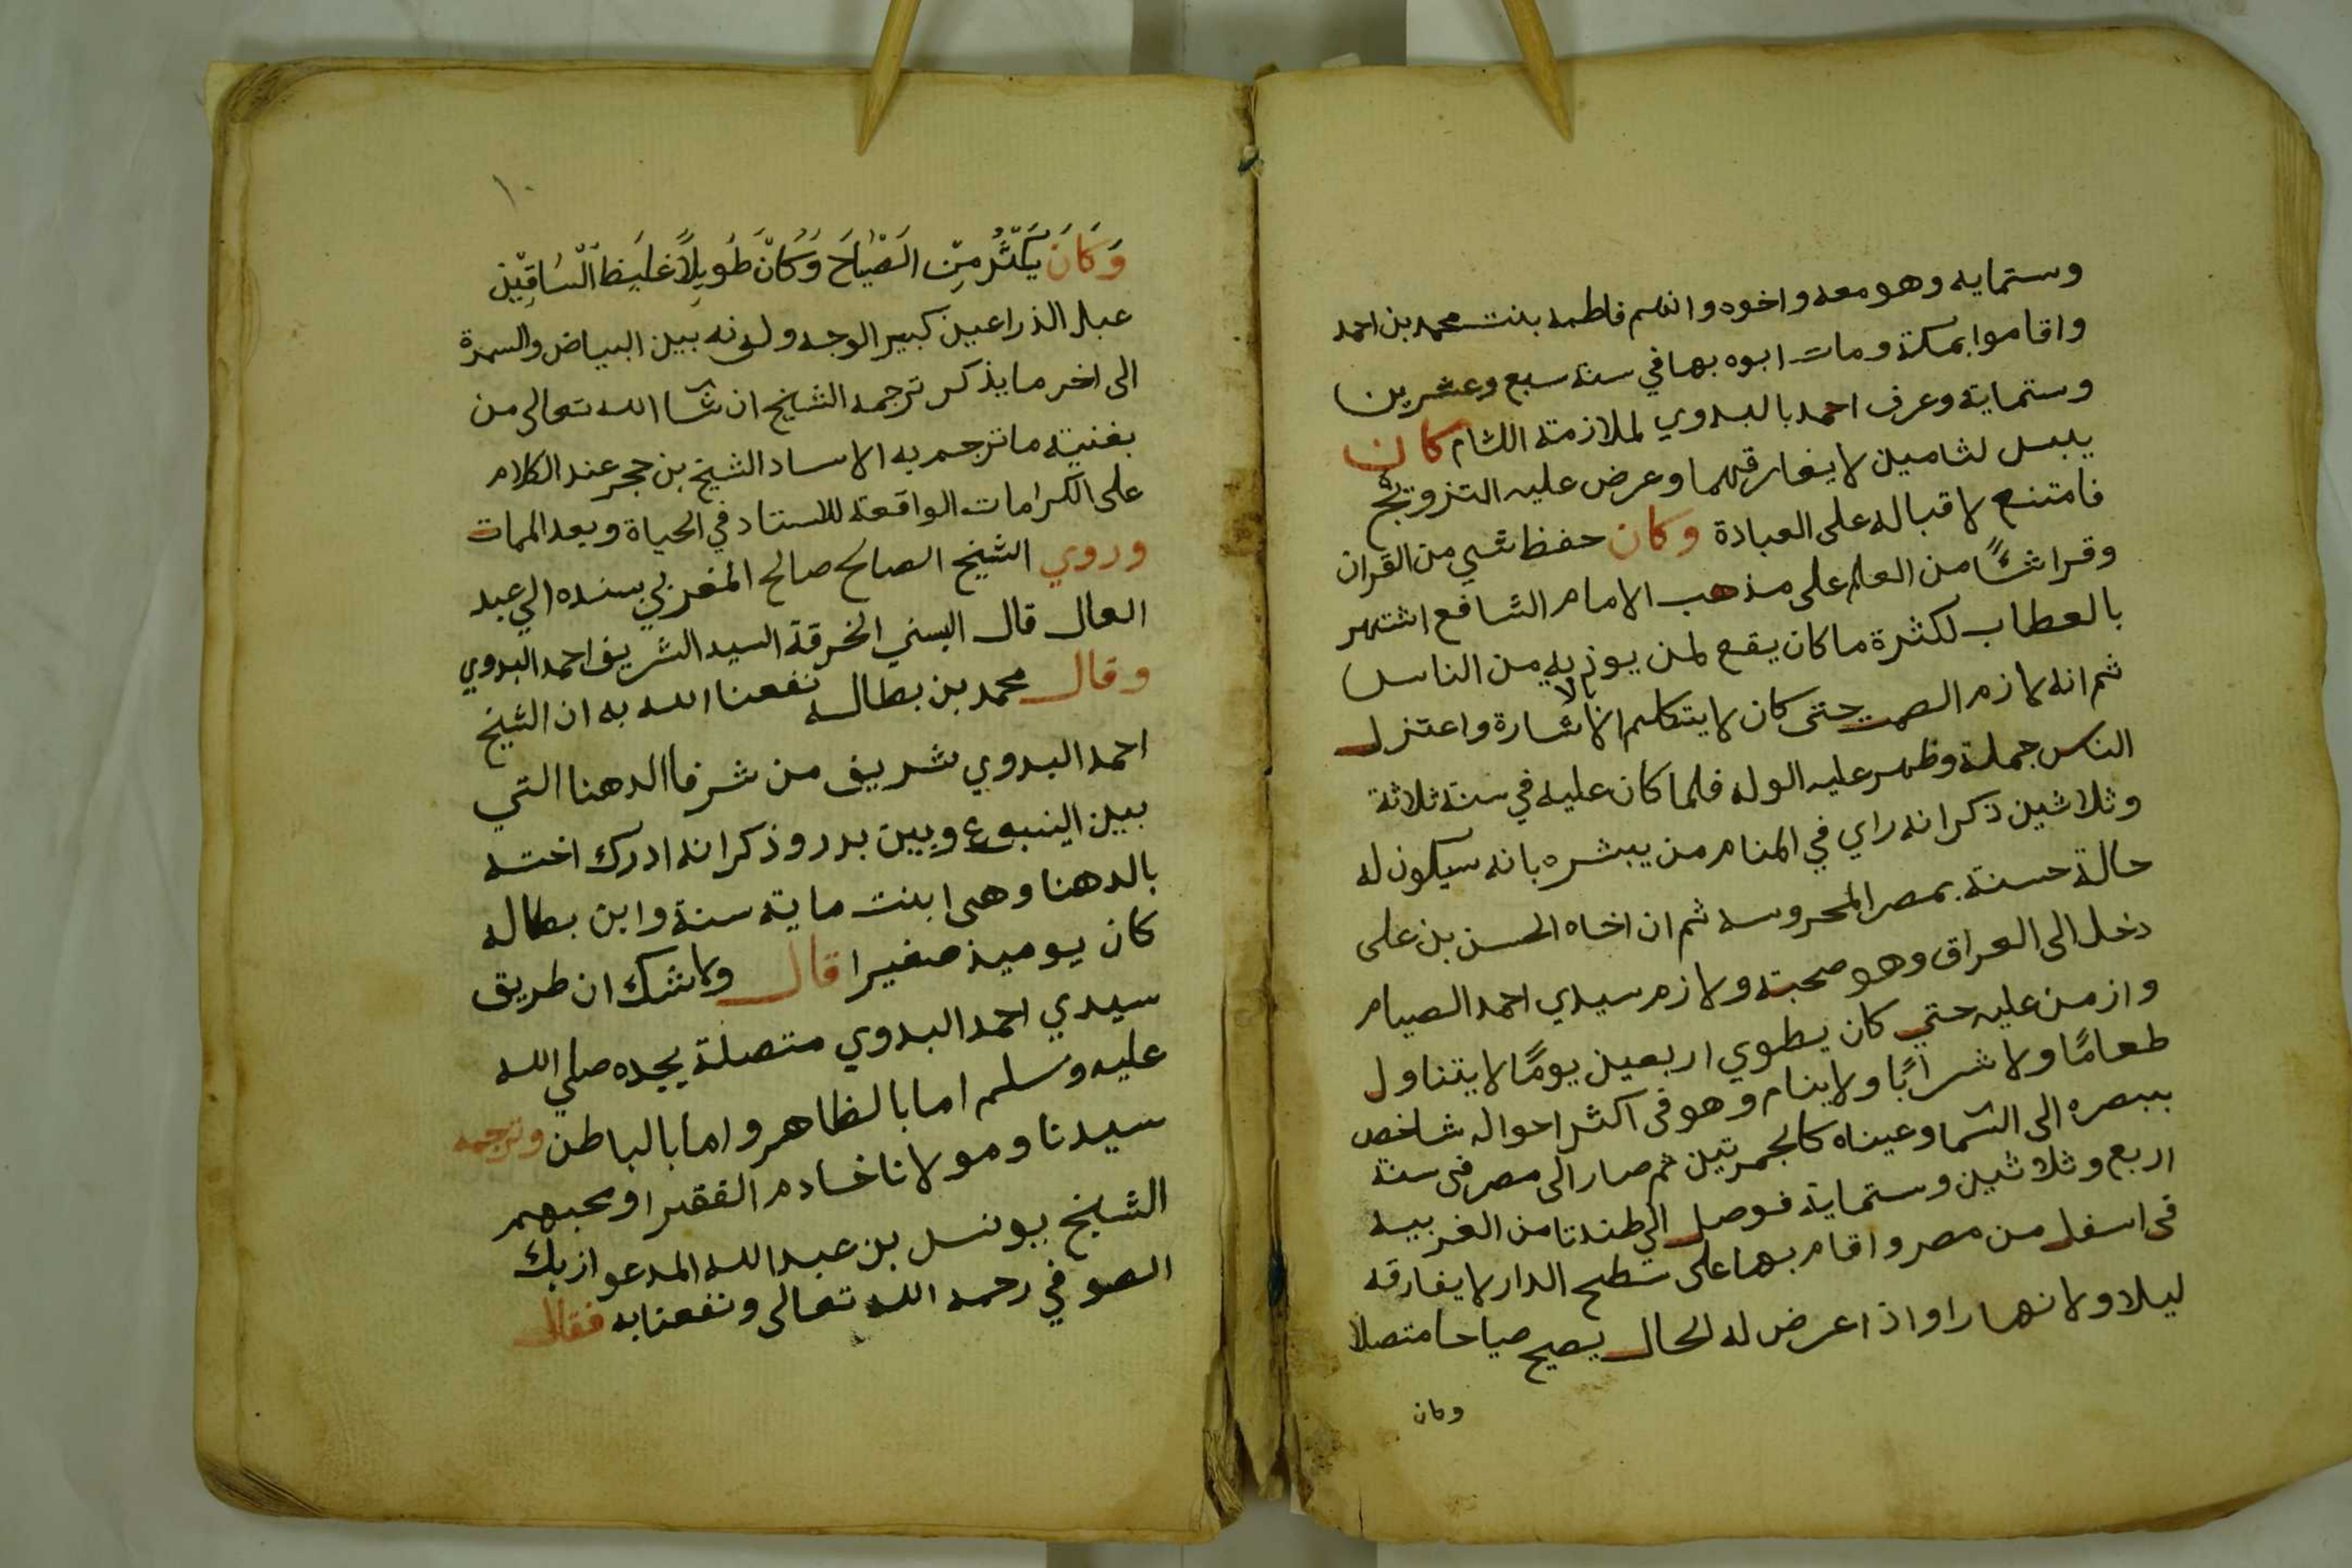 وستمايه وهو معه واخوه وامهم فاطمه بنت محمد بن احمد
واقاموا بمكة ومات ابوه بها في سنة سبع وعشرين
وستماية وعرف احمد بالبدوي لملازمته اللثام كان
يلبس لثامين لا يفارقهما وعرض عليه التزويج
فامتنع لاقباله على العبادة وكان حفظ شي من القران
وقرا شئًا من العلم على مذهب الامام الشافع اشتهر
بالعطاب لكثرة ما كان يقع لمن يوذيه من الناس
ثم انه لازم الصمت حتى كان لا يتكلم الا بالاشارة واعتزل
الناس جملة وظهر عليه الوله فلما كان عليه في سنة ثلاثة
وثلاثين ذكر انه راي في المنام من يبشره بانه سيكون له
حالة حسنة بمصر المحروسه ثم ان اخاه الحسن بن على
دخل الى العراق وهو صحبته ولازم سيدي احمد الصيام
وازمن عليه حتي كان يطوي اربعين يومًا لا يتناول
طعامًا ولا شرابًا ولا ينام وهو فى اكثر احواله شاخص
ببصره الى السما وعيناه كالجمرتين ثم صار الى مصر فى سنة
اربع وثلاثين وستماية فوصل الي طندتا من الغربيه
فى اسفل من مصر واقام بها على سطح الدار لا يفارقه
ليلا ولا نهارا واذا عرض له الحال يصيح صياحا متصلا
وكان
١٠
وَكَانَ يَكثُر مِنِ الصِّيَاحَ وَكَانَ طَوِيلاً غَليظَ السَّاقِيْن
عبل الذراعين كبير الوجه ولونه بين البياض والسمرة
الى اخر ما يذكر ترجمه الشيخ ان شا الله تعالى من
بغنيته ما ترجم به الاساد الشيخ بن حجر عند الكلام
على الكرامات الواقعة للاستاد في الحياة وبعد الممات
وروي الشيخ الصالح صالح المغربي بسنده الي عبد
العال قال البسني الخرقة السيد الشريف احمد البدوي
وقال محمد بن بطاله نفعنا الله به ان الشيخ
احمد البدوي شريف من شرفا الدهنا التي
بين الينبوع وبين بدر وذكر انه ادرك اخته
بالدهنا وهى ابنت ماية سنة وابن بطاله
كان يوميذ صغيرا قال ولا شك ان طريق
سيدي احمد البدوي متصلة بجده صلي الله
عليه وسلم اما بالظاهر واما بالباطن وترجمه
سيدنا ومولانا خادم الفقرا ومحبهم
الشيخ يونس بن عبد الله المدعو ازبك
الصوفي رحمه الله تعالى ونفعنا به فقال